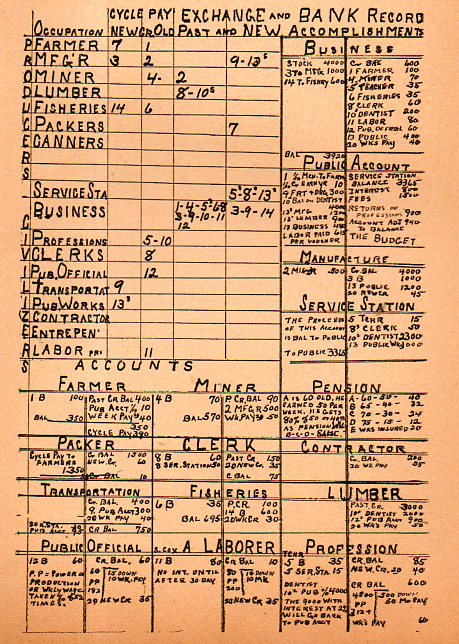 CYCLE PAY EXCHANGE AND BANK RECORD
OCCUPATION NEW CR. OLD PAST AND NEW ACCOMPLISHMENTS
PRODUCERS
FARMER 7 1
MFG'R 3 2 9-13
MINER 4- 2
LUMBER 8-10
FISHERIES 14 6
PACKERS 7
CANNERS
CIVILIZERS
SERVICE STA 5 8 13
BUSINESS 1-4-5-68 3-9-10-11 12 3-9-14
PROFESSIONS 5-10
CLERKS 8
PUB. OFFICIAL 12
TRANSPORTAT 9
PUB. WORKS 13
CONTRACTOR
ENTREPEN
LABOR PRI 11
BUSINESS
STOCK 4000
3 TO MFG 1000
14 T. FISHRY 600
BAL 3920
CR. BAL 600
1 FARMER 100
4 MINER 70
5 TEACHER 35
6 FISHERIES 35
8 CLERK 60
10 DENTIST 200
11 LABOR 80
12 PUB. OFFICAL 60
13 PUBLIC 400
20 WKS PAY 40
PUBLIC ACCOUNT
9 FRT & DRG. 300
10 BAL ON DENTIST
12 LUMBER 900
13 BUSINESS 400
LABOR PAID
PER VOUCHER
SERVICE STATION
BALANCE 3365
INTEREST
FEES
RETURNS ON
PROFESSIONS 900
ACCOUNT ADJ 940
TO BALANCE
THE BUDGET
MANUFACTURE
2 MINER 500
CR. BAL 4000
3 B 1000
13 PUBLIC 1200
20 NEW CR 45
SERVICE STATION
THE PROCEEDS
OF THIS ACCOUNT
IS BAL TO PUBLIC
TO PUBLIC 3365
5 TCHR 15
8 CLERK 50
10 DENTIST 2300
13 PUBLIC WKS 1000
ACCOUNTS
FARMER
1 B 100
BAL 350
PAST CR. BAL 400
PUB ACCT 1/2 10
WEEK PAY 40
350
CYCLE PAY 390
MINER
4 B 70
BAL 570
P. CR. BAL 90
2 MFGR 500
WK PAY 50
PENSION
A IS 60 OLD. HE
EARNED 50 PER
WEEK. HE GETS
80% $50 OR 40
AS PENSION WILL
B-C-D- SAME.
A-60-50-40
B 65-40-32
C 70-30-24
D 75-15-12
E WAS INSURED 00
PACKER
CYCLE PAY TO
FARMERS
1350
CR. BAL 1500
NEW CR. 60
CR BAL 10
CLERK
8 B 60
8 SER. STATION 50
PAST CR 150
20 NEW CR. 35
C BAL 75
CONTRACTOR
CR. BAL 200
20 WK PAY 35
TRANSPORTATION
SER. STA.
CR. BAL 400
9 PUB ACCT 300
20 WK PAY 40
CR BAL 750
FISHERIES
6 B 35
BAL 695
P. CR. 100
14 B 600
20 WK CR 30
LUMBER
PAST. CR. 3000
10 DENTIST 2000
12 PUB ACCT 900
20 WK'S PAY 50
PUBLIC OFFICIAL
12 B 60
P. P. = POWER OF
PRODUCTION
OR WKLY WAGE
TAKEN % & 52
TIMES.
CR. BAL. 60
60 15 DOWN
PP 10 WK. PAY
20 NEW CR 35
A LABORER
11 B 80
NO INT. UNTIL
AFTER 30 DAY
CR BAL 10
PP 10 WK
200
20 NEW CR 35
PROFESSION
TCHR
5 B 35
5 SER. STA 15
DENTIST
10 PUB 1/2 4000
THE 900 WITH
INTEREST AT 2%
WILL GO BACK
TO PUB ACCT
CR. BAL 85
NEW. CR. 20 40
CR BAL 600
4800 500 DOWN
PP 50 MO PAY
WK'S PAY 60